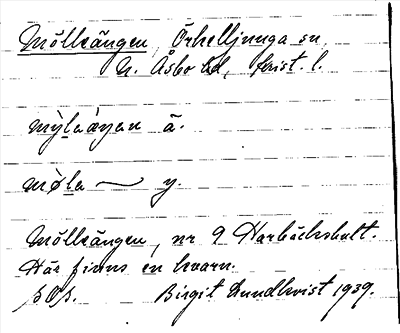 Mölleängen, Örkelljunga sn.
N. Åsbo hd, Krist. l.
mỳlaáŋan ä.
mǿla ~ y.
Mölleängen, nr 9 Harbäckshult.
Här finns en kvarn.
Birgit Lundkvist 1939.